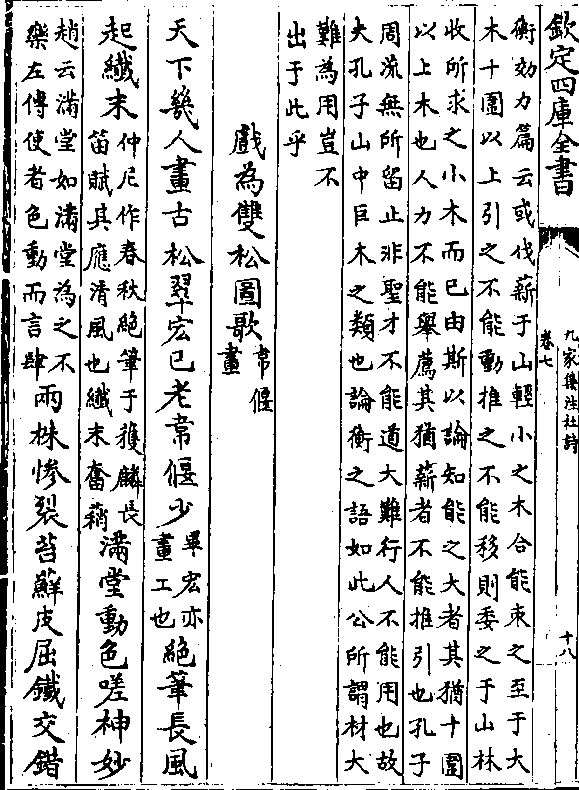 欽定四庫全書
九家集注杜詩
卷七
十八
衡効力篇云或伐薪于山輕小之木合能束之至于大
木十圍以上引之不能動推之不能移則委之于山林
收所求之小木而已由斯以論知能之大者其猶十圍
以上木也人力不能舉薦其猶薪者不能推引也孔子
周流無所留止非聖才不能道大難行人不能用也故
夫孔子山中巨木之類也論衡之語如此公所謂材大
難為用豈不
出于此乎
戲為雙松圖歌 韋偃畫
天下幾人畫古松畢宏已老韋偃少 畢宏亦畫工也 絶筆長風
起纖末 仲尼作春秋絶筆于獲麟長笛賦其應清風也纖末奮蕱 滿堂動色嗟神妙
趙云滿堂如滿堂為之不樂左傳使者色動而言肆 兩株慘裂苔蘚皮屈鐵交錯